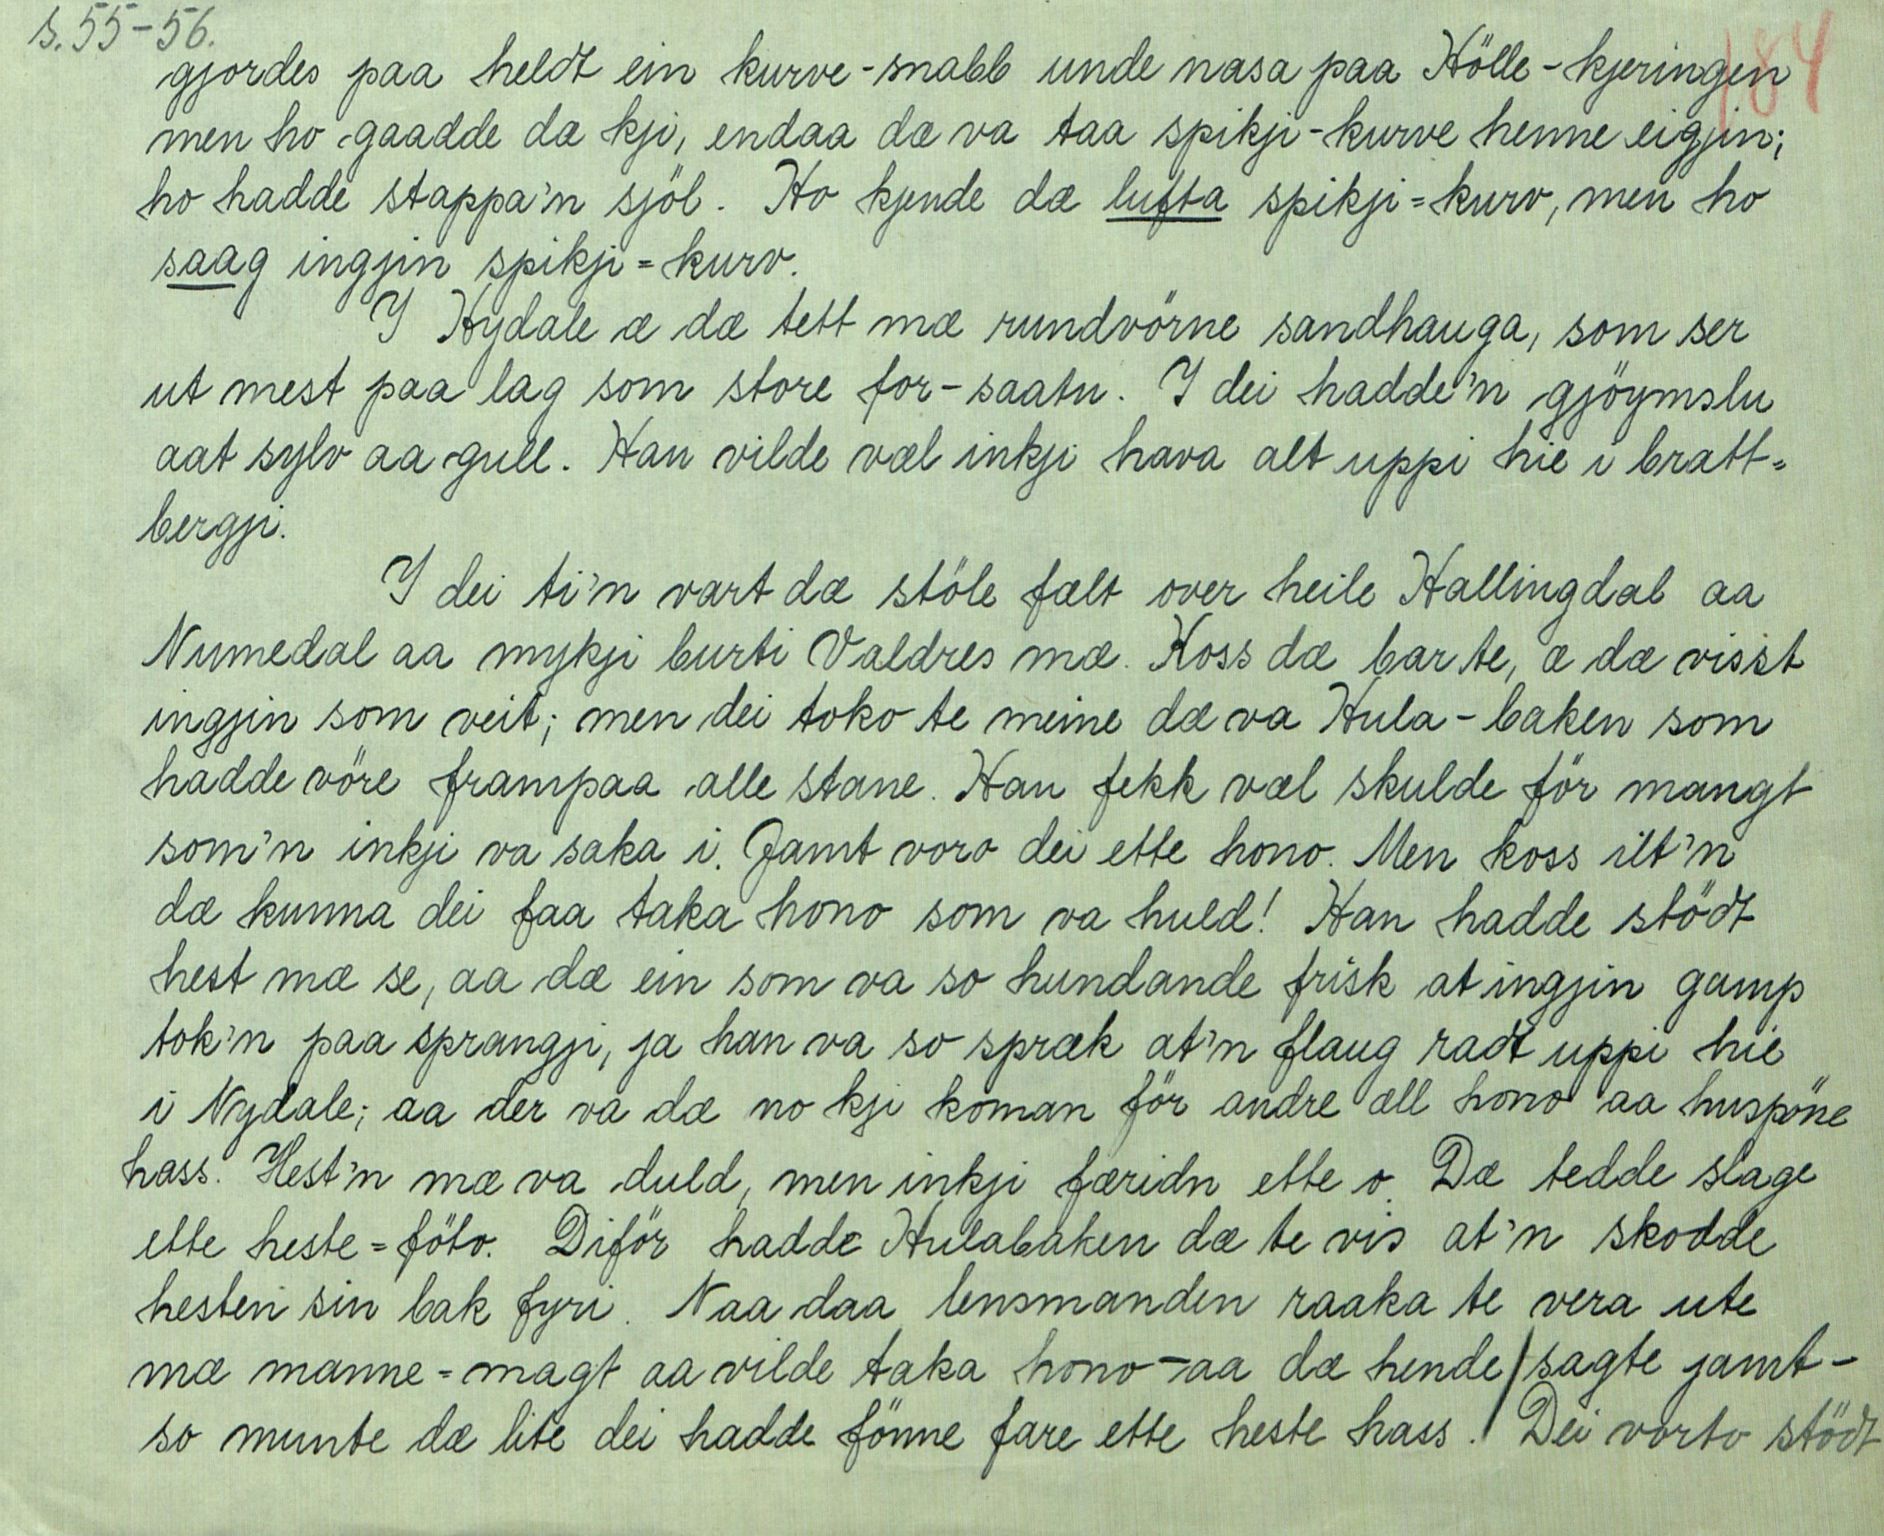 s. 55-56.
184
gjordes paa heldt ein kurve-snabb unde nasa paa Hölle-kjeringen
men ho gaadde dæ kji, endaa dæ va taa spikji-kurve henne eigjin;
ho hadde stappa'n sjöl. Ho kjende dæ lufta spikji=kurv, men ho
saag ingjin spikji=kurv.
I Nydale æ dæ tett mæ rundvörne sandhauga, som ser
ut mest paa lag som store for-saatu. I dei hadde'n gjöymslu
aat sylv aa gull. Han vilde væl inkji hava alt uppi hie i bratt=
bergji.
I dei ti'n vart dæ stöle fælt over heile Hallingdal aa
Numedal aa mykji burti Valdres mæ. Koss dæ bar te, æ dæ visst
ingjin som veit; men dei toko te meine dæ va Hula-baken som
hadde vöre frampaa alle stane. Han fekk væl skulde för mangt
som'n inkji va saka i. Jamt voro dei ette hono. Men koss ilt'n
dæ kunna dei faa taka hono som va huld! Han hadde stödt
hest mæ se, aa dæ ein som va so hundande frisk at ingjin gamp
tok'n paa sprangji, ja han va so spræk at'n flaug radt uppi hie
i Nydale; aa der va dæ no kji koman för andre æll hono aa huspöne
hass. Hest'n mæ va duld, men inkji færidn ette o. Dæ tedde slage
ette heste=föto. Diför hadde Hulabaken dæ te vis at'n skodde
hesten sin bak fyri. Naa daa lensmanden raaka te vera ute
mæ manne=magt aa vilde taka hono - aa dæ hende / sagte jamt -
so munte dæ lite dei hadde fönne fare ette heste hass. / Dei vorto stödt